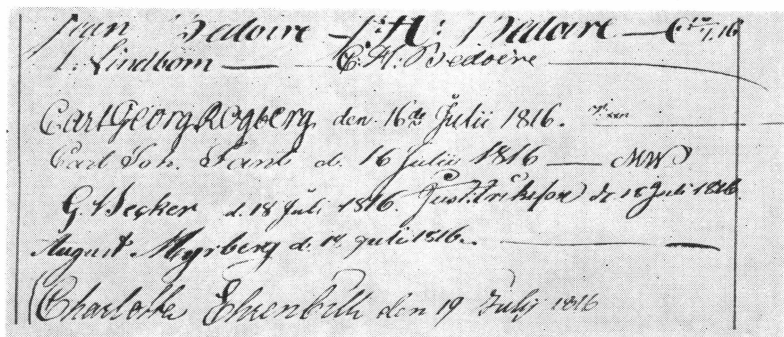 Jean Bedoire — J: H: Bedoire —
J. Lindbom — C. H: Bedoire
Carl Georg Rogberg den 16de Julii 1816.
Carl Joh. d. 16 Julii 1816 — MW
G. A Becker d. 18 Juli 1816. d. 18 Juli 1816.
August Myrberg d. 19 Juli 1816.
Charlotta den 19 Julij 1816